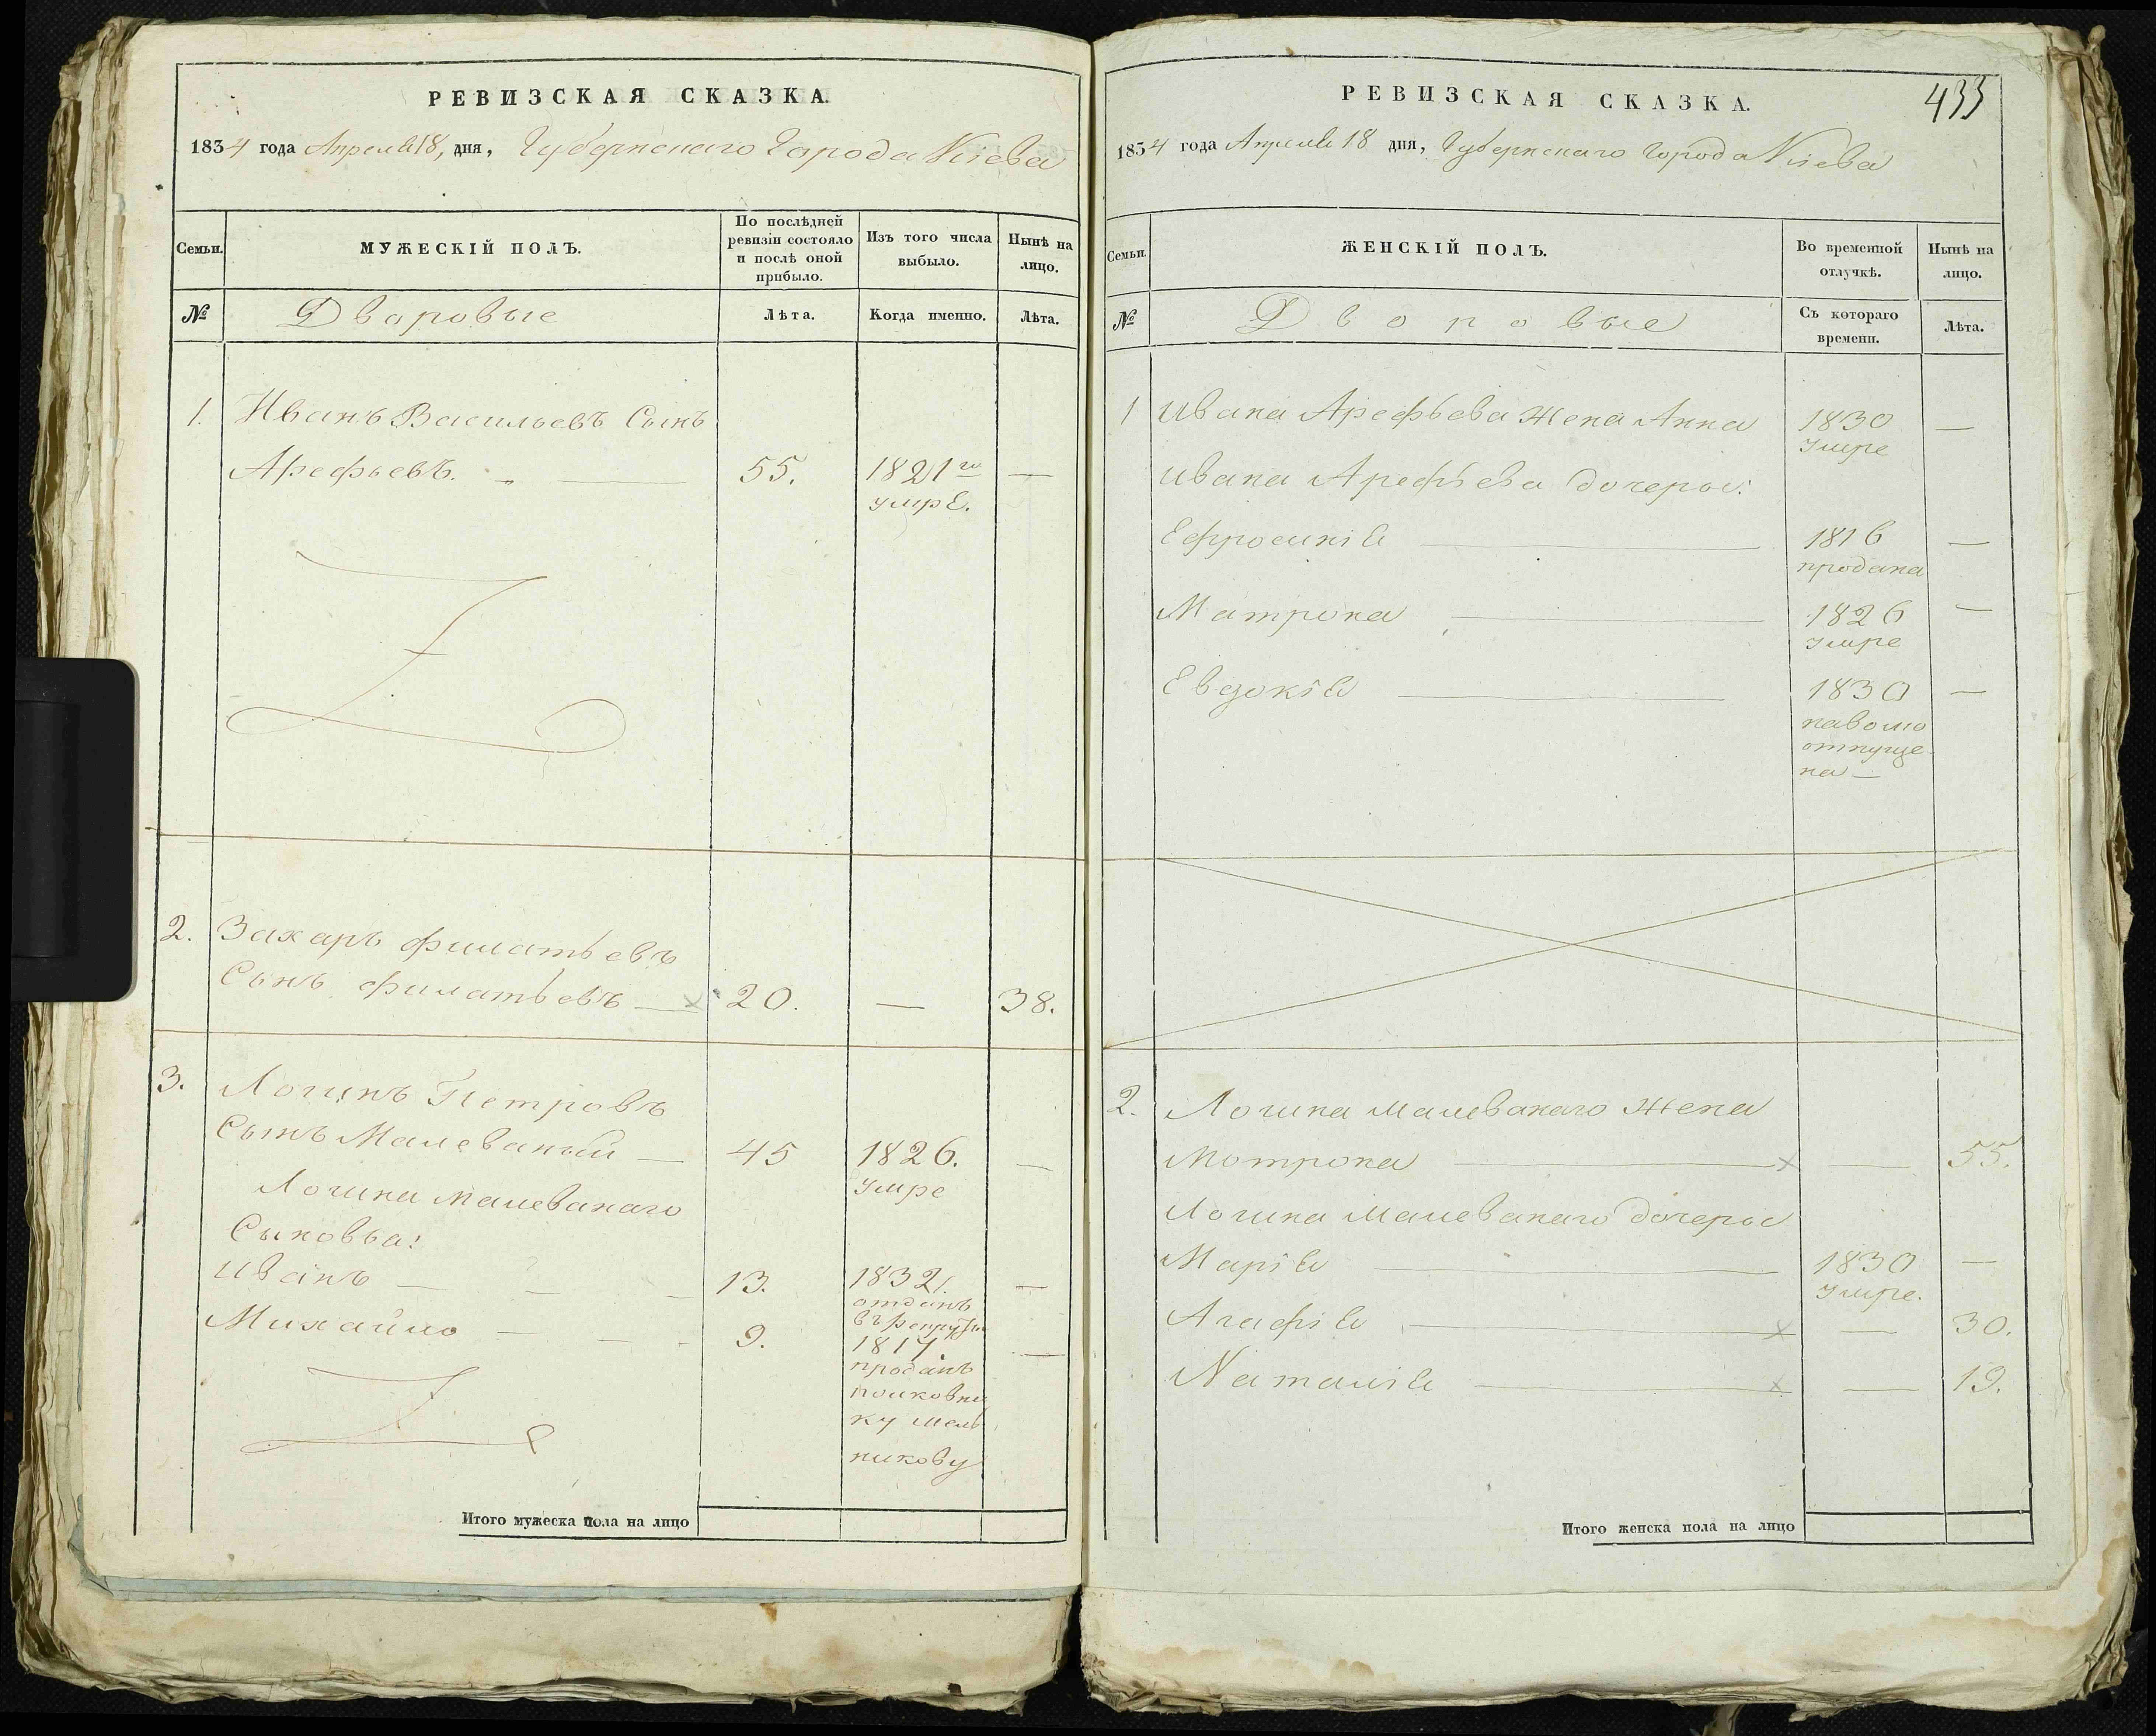 РЕВИЗСКАЯ СКАЗКА.
1834 года Апреля 18, дня, Губернскаго Города Кіева
Семьи.
МУЖЕСКІЙ ПОЛЪ.
По послѣдней
ревизіи состояло
и послѣ оной
прибыло.
Изъ того числа
выбыло.
Нынѣ на
лицо.
№
Дворовые
Лѣта.
Когда именно.
Лѣта.
1. Иванъ Васильевъ Сынъ
Арефьевъ. — 55. 1821го —
умре.
2. Захаръ филатьевъ
Сынъ филатьевъ — 20. — 38.
3. Логинъ Петровъ
Сынъ Малеваный — 45 1826. —
умре
Логина Малеванаго
Сыновья:
Иванъ — 13. 1832. —
отданъ
въ рекруты
Михайло — 9. 1817. —
проданъ
полковни
ку Мель
никову
Итого мужеска пола на лицо
РЕВИЗСКАЯ СКАЗКА.
433
1834 года Апреля 18 дня, Губернскаго Города Кіева
Семьи.
ЖЕНСКІЙ ПОЛЪ.
Во временной
отлучкѣ.
Нынѣ на
лицо.
№
Дворовые
Съ котораго
времени.
Лѣта.
1 Ивана Арефьева Жена Анна 1830 —
умре
Ивана Арефьева дочеры:
Ефросинія — 1816 —
продана
Матрона — 1826 —
умре
Евдокія — 1830 —
наволю
отпуще
на —
2. Логина Малеванаго Жена
Мотрона — х — 55.
Логина Малеванаго дочеры
Марія — 1830 —
умре.
Агафія — х — 30.
Наталія — х — 19.
Итого женска пола на лицо